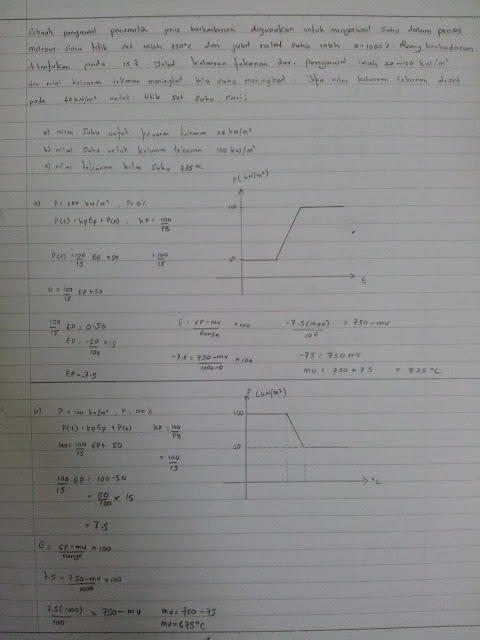 Sebuah pengawal pneumatik jenis berkadaran digunakan untuk mengawal suhu dalam proses
melebur. Suhu titik set ialah 750°C dan jubt ralat suhu ialah 0-1000°C. Ruang berkadaran
ditentukan pada 15%. Julat keluaran tekanan dari pengawal ialah 20-100 kN/m²
dan nilai keluaran tekanan meningkat bila suhu meningkat. Jika nilai keluaran tekanan diset
pada 60 kN/m² untuk titik set suhu. Cari;
a) nilai suhu untuk keluaran tekanan 20 kN/m²
b) nilai suhu untuk keluaran tekanan 100 kN/m²
c) nilai tekanan bila suhu 735°C
P(kN/m²)
100
20
E
a) P = 200 kN/m², P = 0%
P(t) = kpEp + P(o), kP = 100/PB
P(t) = 100/15 Ep + 50 = 100/15
0 = 100/15 Ep + 50
100/15 Ep = 0-50
Ep = -50/100 × 15
Ep = -7.5
E = SP-MV/Range × 100
-7.5 = 750-MV/1000-0 × 100
-7.5(1000)/100 = 750-MV
-75 = 750 MV
MV = 750 + 75 = 825°C
b) P = 100 kN/m², P = 100%
P(t) = kpEp + P(o) kP = 100/PB
100 = 100/15 Ep + 50 = 100/15
100/15 Ep = 100-50
= 50/100 × 15
= 7.5
E = SP-MV/range × 100
7.5 = 750-MV/1000 × 100
7.5(1000)/100 = 750-MV
MV = 750-75
MV = 675°C
P (kN/m²)
100
20
°C